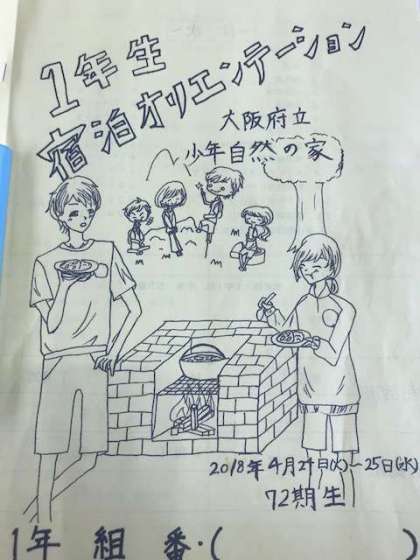 1年生
宿泊オリエンテーション
大阪府立
少年自然の家
2018年4月24日(火)~25日(水)
72期生
1年 組 番・( )